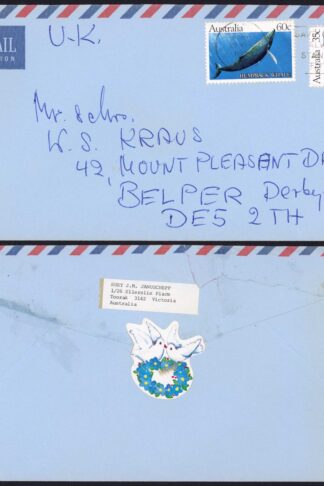 U.K.
AIL
Australia 60c
HUMPBACK WHALE
Australia 35c
Mr. & Mrs.
W. S. KRAUS
42, MOUNT PLEASANT D
BELPER Derby
DE5 2TH
J.M. JANUSCHEPP
Toorak 3142 Victoria
Australia